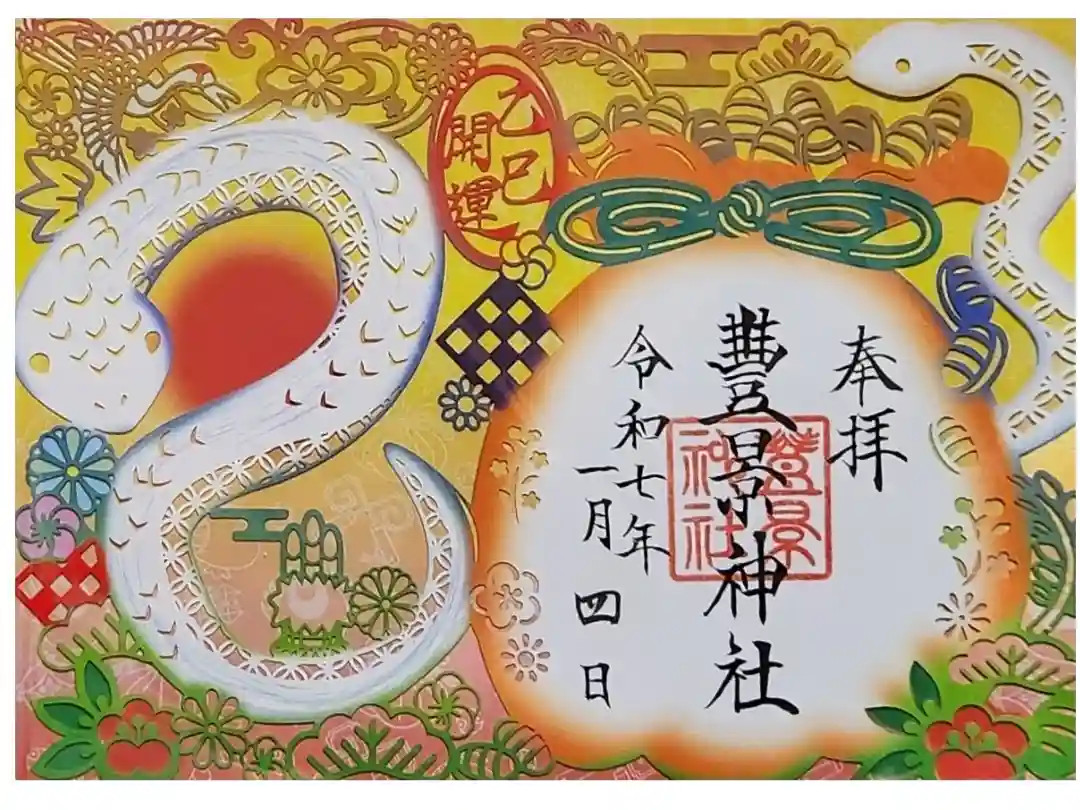 奉拝
豐景神社
令和七年
一月四日
乙巳
開運
豐景
神社